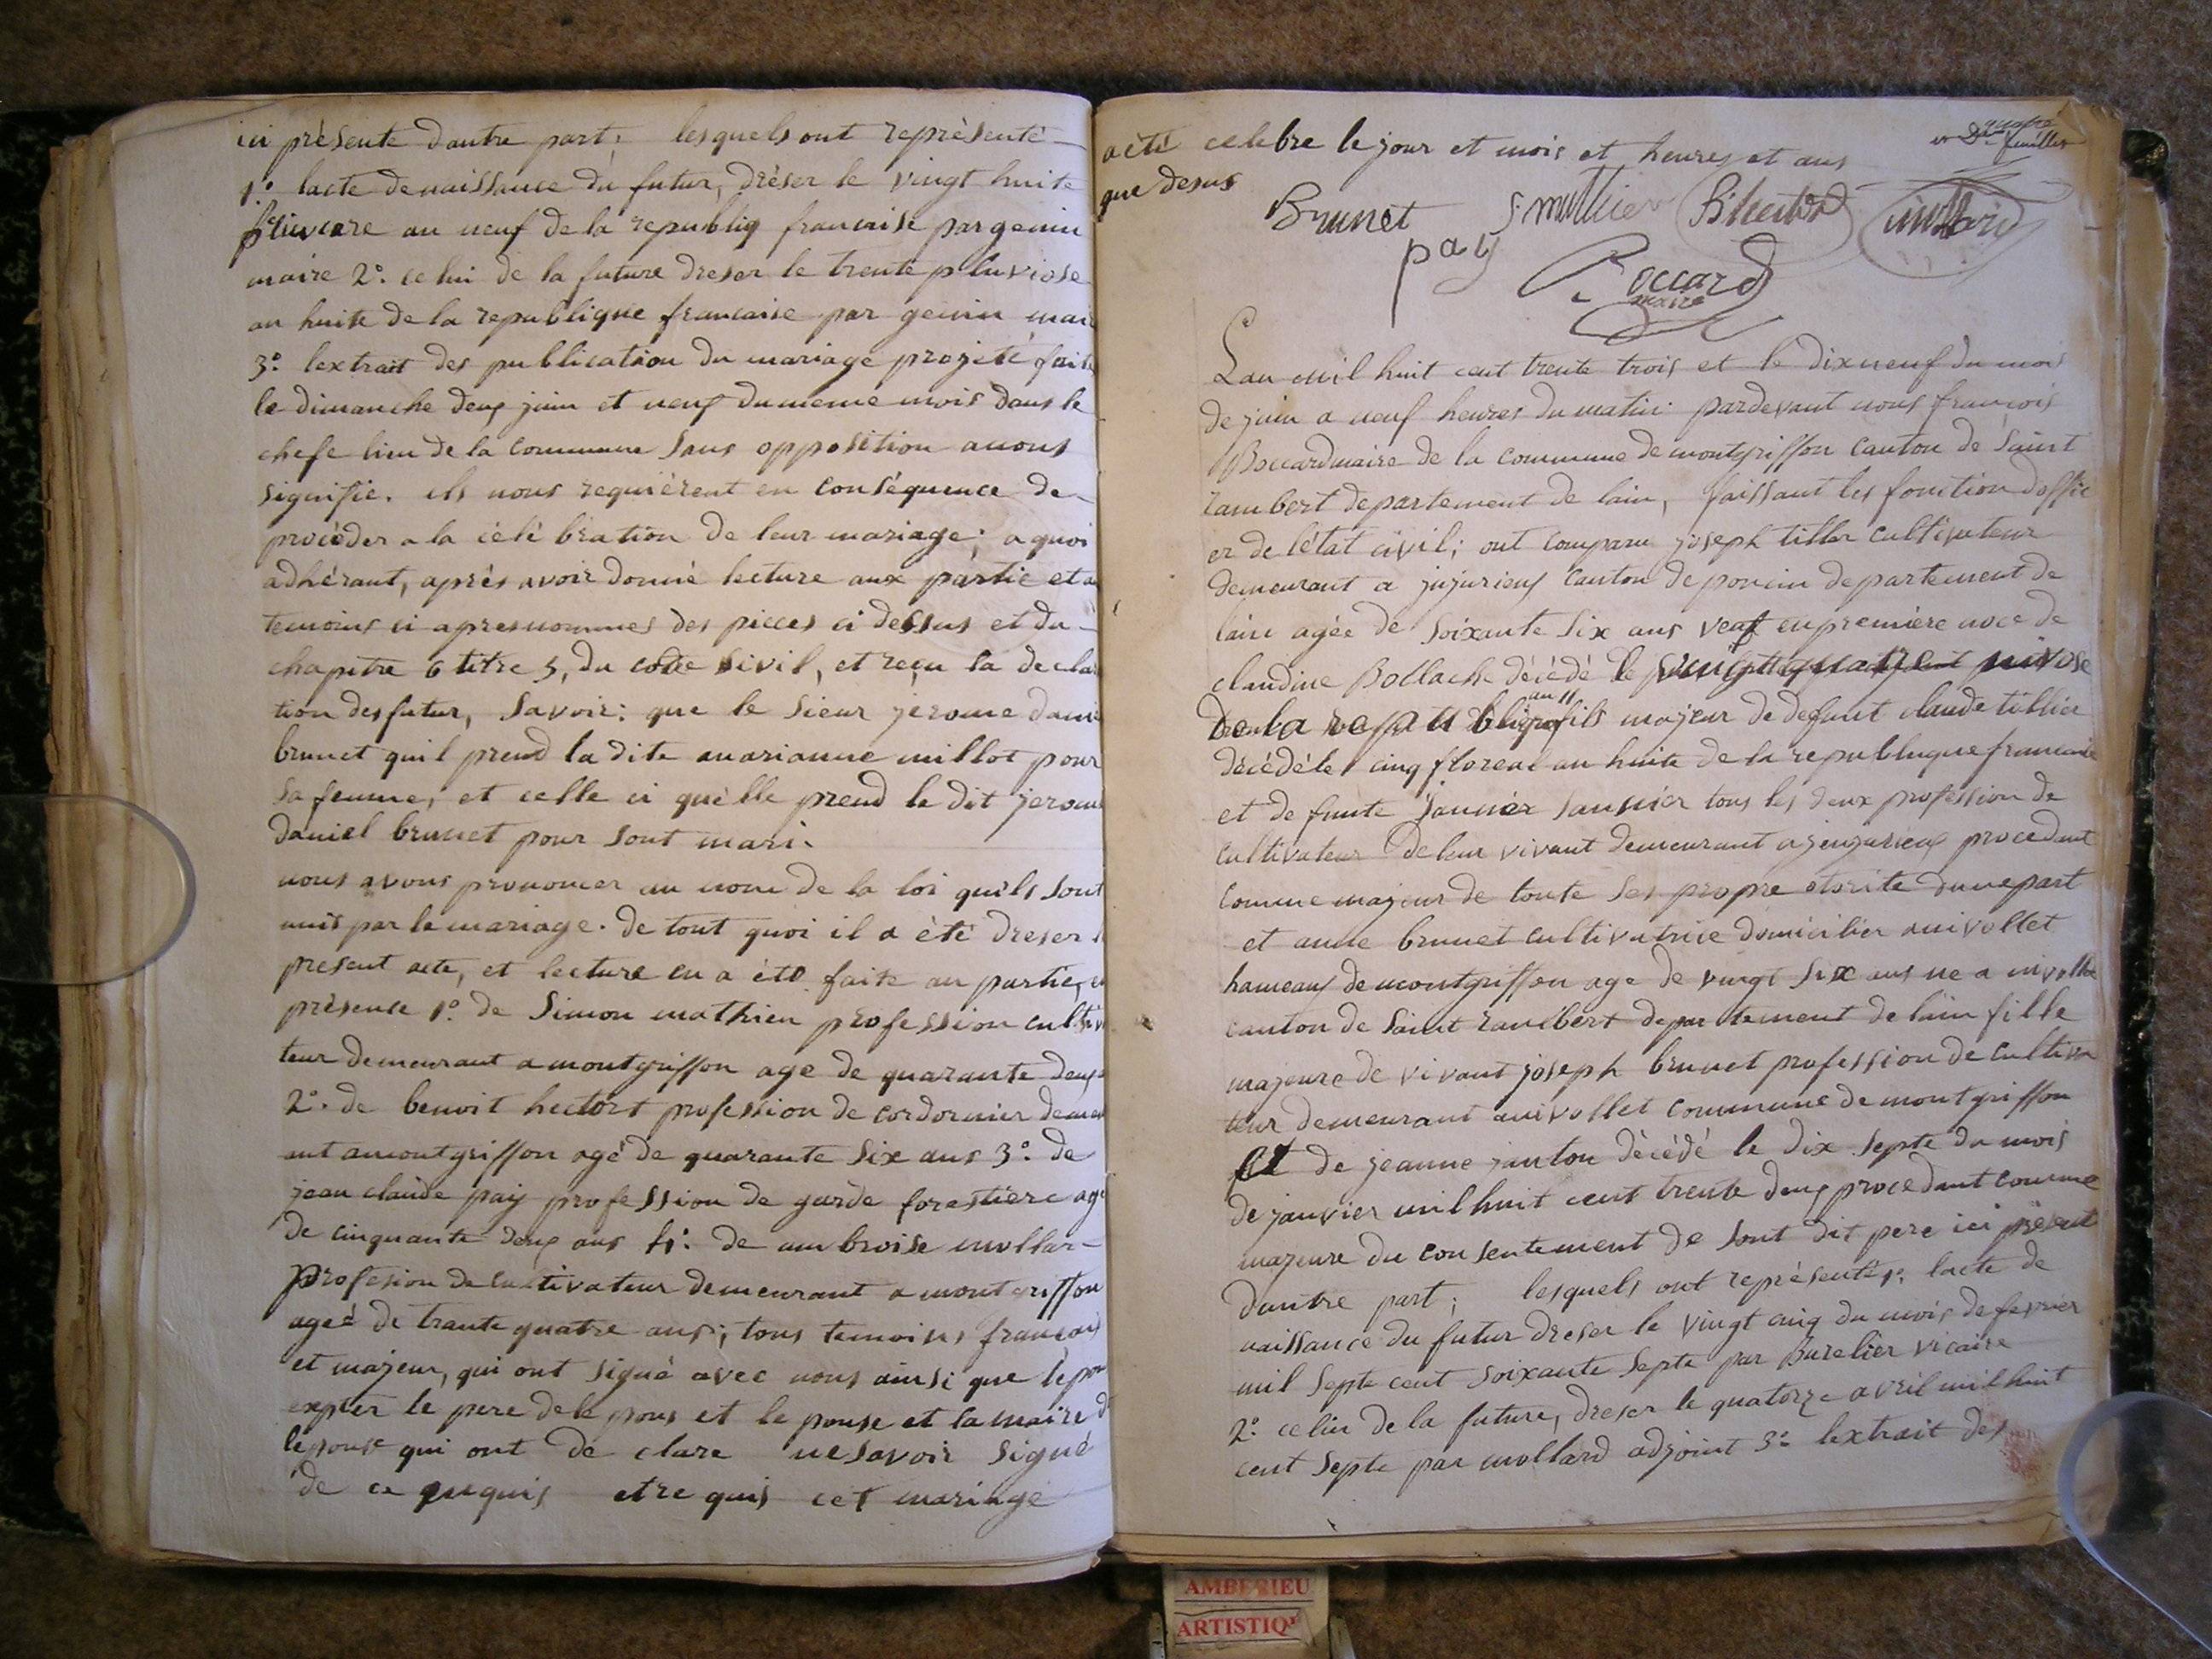 ici présente dautre part, lesquels ont représenté
1.° lacte denaissance du futur, dréser le vingt huite
au neuf de la republiq francaise par genin
maire 2.° celui de la future dreser le trente pluviose
an huite de la republique francaise par genin mair
3.° lextrait des publication du mariage projeté faite
le dimanche deux juin et neuf dumeme mois dans le
chefe lieu de la Commune sans opposition a nous
signifie. ils nous requièrent en conséquence de
procéder a la célébration de leur mariage; a quoi
adhérant, après avoir donné lecture aux partie et a
temoins ci apres nommes des pieces ci dessus et du
chapitre 6 titre 5, du code sivil, et reçu la decla
tion des futur, savoir: que le sieur jerome dani
brunet quil prend la dite marianne millot pour
sa femme, et celle ci quèlle prend le dit jerome
daniel brunet pour sont mari.
nous avons prononcer au nom de la loi quils sont
unis par le mariage. de tout quoi il a été dreser l
present acte, et lecture en a été faite au partie, en
présence 1.° de Simon mathieu profession cultiv
teur demeurant a montgriffon age de quarante deux
2.° de benoit hectort profession de cordornier demeu
ant amontgriffon agé de quarante six ans 3.° de
jean claude pay profession de garde forestière age
de cinquante deux ans 4.° de ambroise mollar-
profesion de cultivateur demeurant a montgriffon
ageé de trante quatre ans; tous temoins francois
et majeur, qui ont signé avec nous ainsi que lépou
expter le pere dele pous et le pouse et la maire d
lépouse qui ont de clare ne savoir signé
de ce quis etre quis cet mariage
quatre
feuilles
a été celebre le jour et mois et heures et ans
que desus
Brunet S. mathieu B hector mollard
pay
Boccard
maire
Lan mil huit cent trente trois et le dixneuf du mois
de juin a neuf heures du matin pardevant nous francois
Boccard maire de la commune de montgriffon canton de saint
rambert departement de lain, faissant les fonction doffic
er de létat civil; ont comparu joseph tiller cultivateur
demeurant a jujurieux canton de poncin departement de
lain agée de soixante six ans veuf en premiere noce de
claudine Bollache décédé le vingt quatre nivose
an 11
de la republique fils majeur de defunt claude tillier
décédé le cinq floreal an huite de la republuque francaise
et de funte saunier tous les deux profession de
cultivateur de leur vivant demeurant a jujurieux procedant
comme majeur de toute ses propre otorite dune part
et anne brunet cultivatrice domicilier a nivollet
hameaux de montgriffon age de vingt six ans ne a nivollet
canton de saint rambert departement de lain fille
majeure de vivant joseph brunet profession de cultiva
teur demeurant a nivollet commune de montgriffon
et de jeanne janton décédé le dix septe du mois
de janvier mil huit cent trente deux procedant comme
majeure du consentement de sont dit pere ici présent
dautre part; lesquels ont représenté 1.° lacte de
naissance du futur dreser le vingt cinq du mois de fevrier
mil septe cent soixante septe par Burelier vicaire
2.° celui de la future, dreser le quatorze avril mil huit
cent septe par mollard adjoint 3.° lextrait des
AMBERIEU
ARTISTIQ